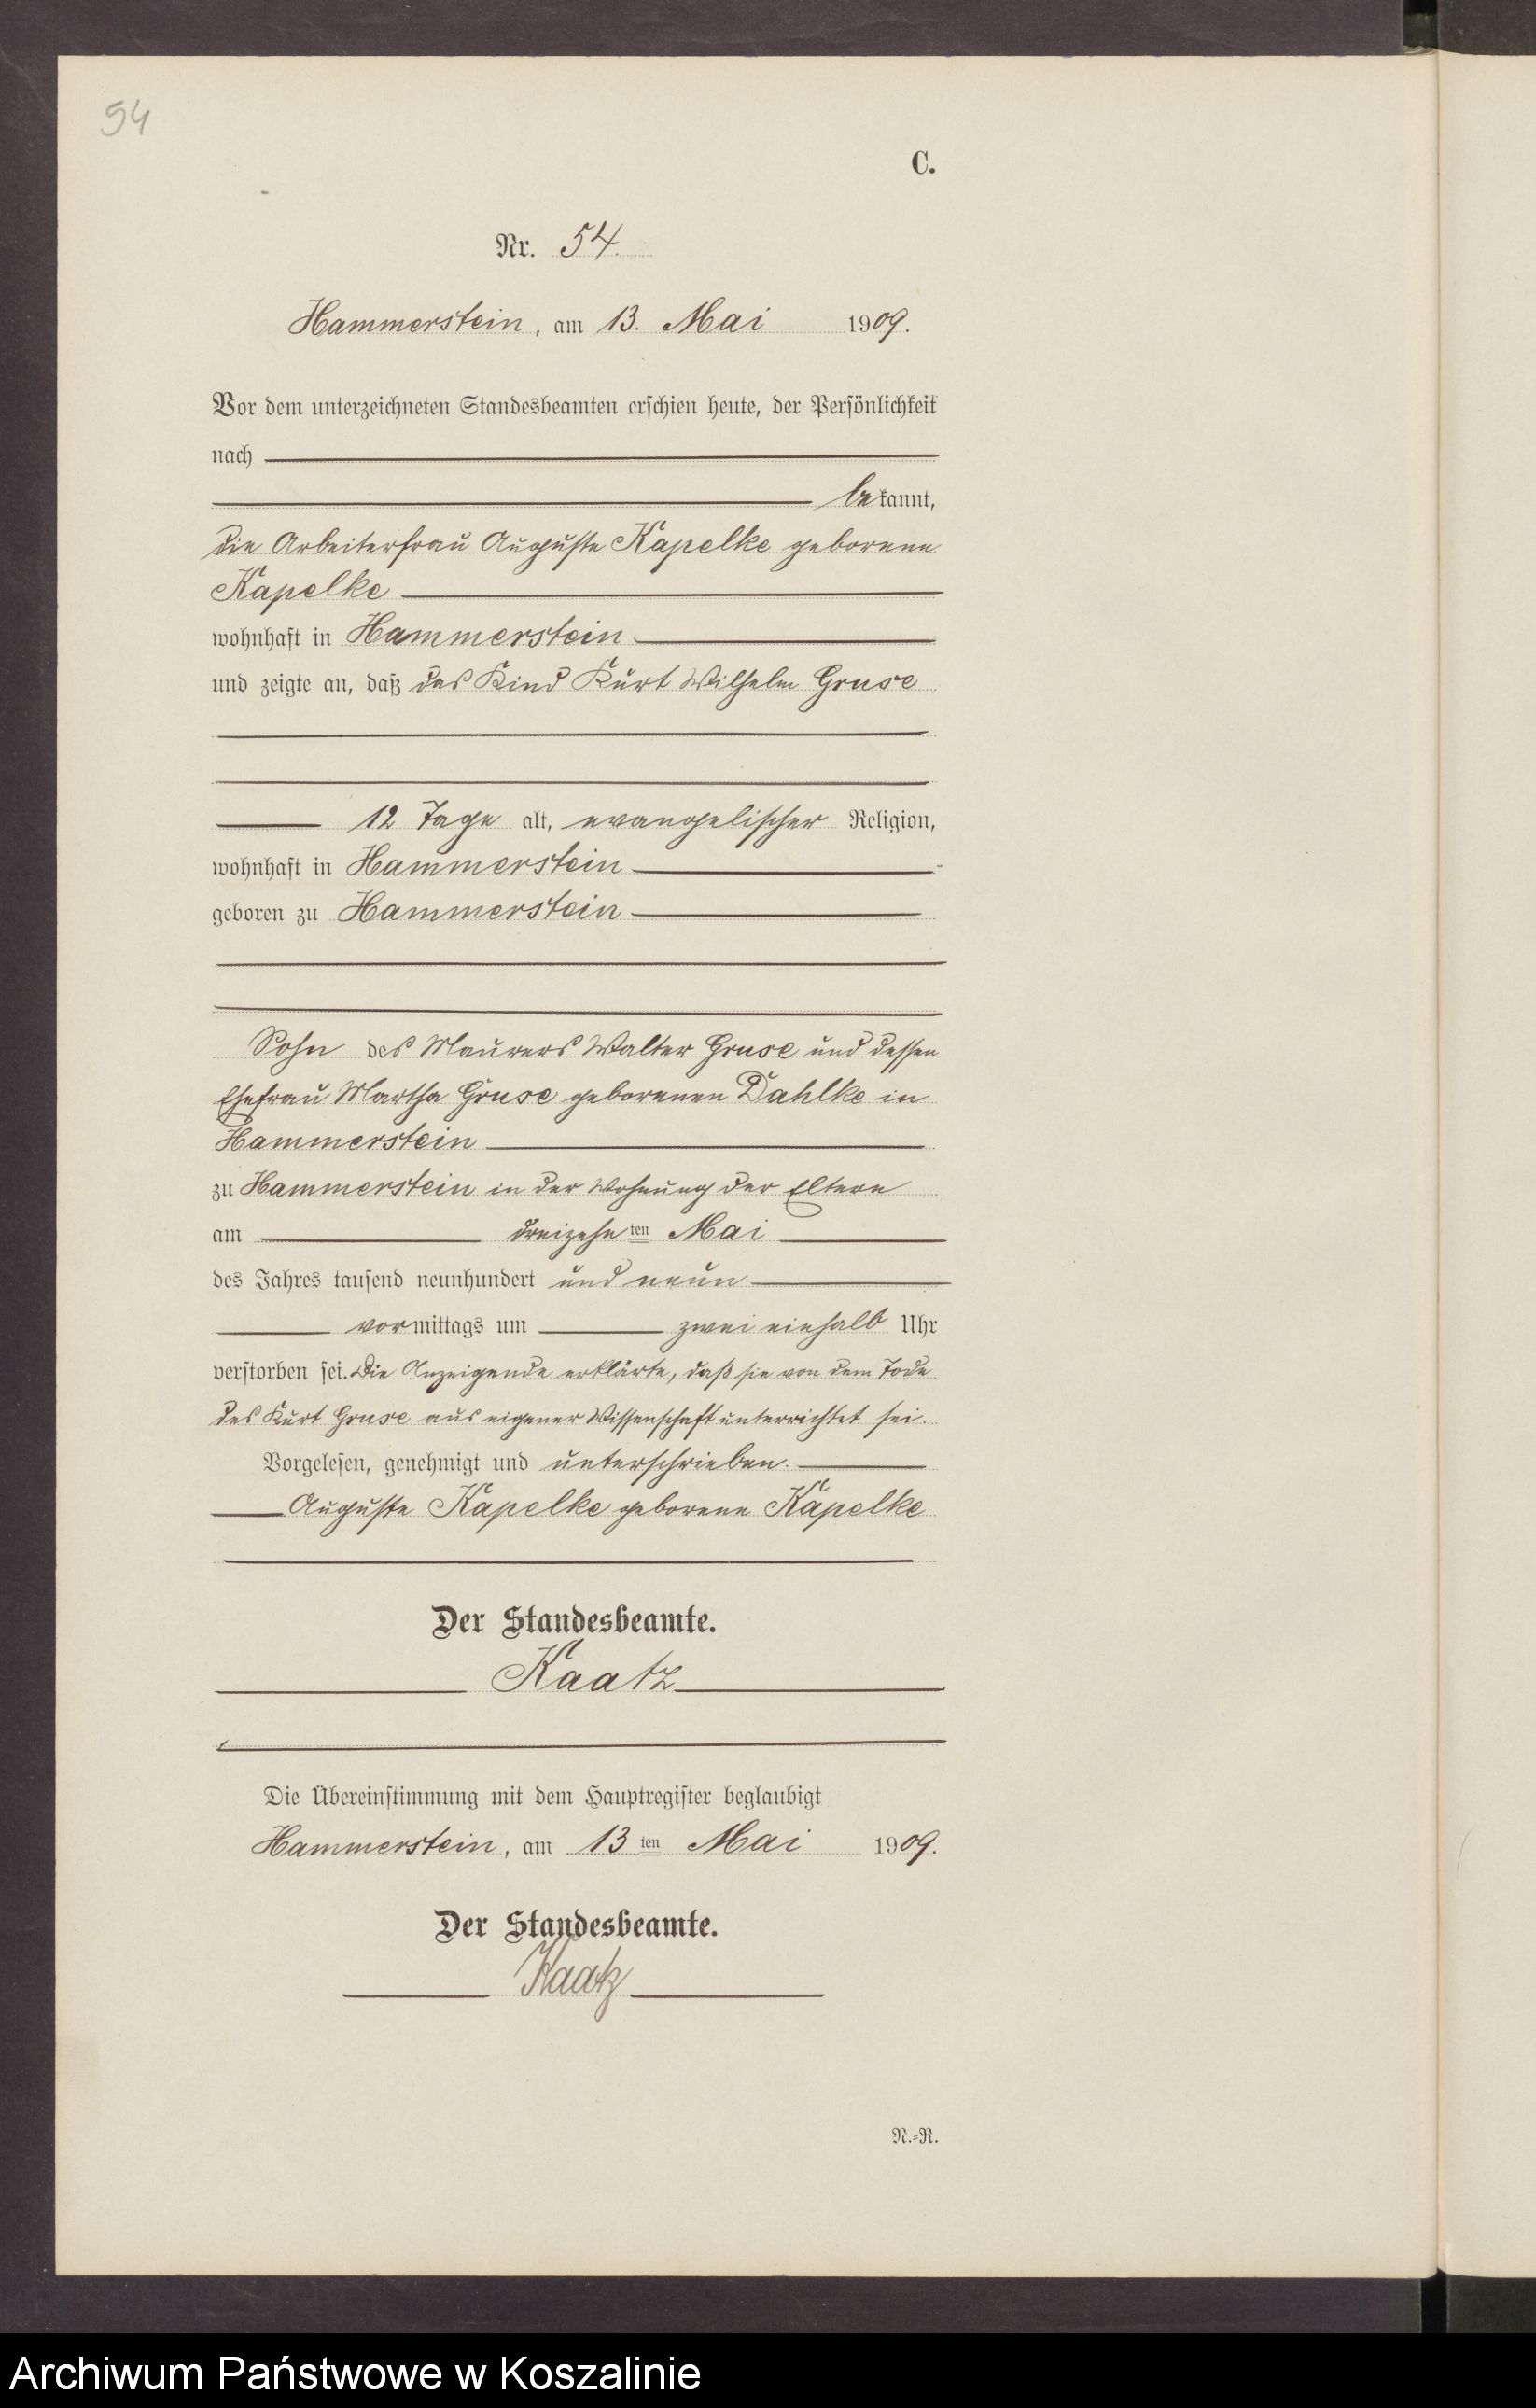 54
C.
Nr. 54.
Hammerstein, am 13. Mai 1909.
Vor dem unterzeichneten Standesbeamten erschien heute, der Persönlichkeit
nach
bekannt,
die Arbeiterfrau Auguste Kapelke geborene
Kapelke
wohnhaft in Hammerstein
und zeigte an, daß das Kind Kurt Wilhelm Gruse
12 Tage alt, evangelischer Religion,
wohnhaft in Hammerstein
geboren zu Hammerstein
Sohn des Maurers Walter Gruse und dessen
Ehefrau Martha Gruse geborenen Dahlke in
Hammerstein
zu Hammerstein in der Wohnung der Eltern
am dreizehnten Mai
des Jahres tausend neunhundert und neun
vormittags um zwei einhalb Uhr
verstorben sei. Die Anzeigende erklärte, daß sie von dem Tode
des Kurt Gruse aus eigener Wissenschaft unterrichtet sei.
Vorgelesen, genehmigt und unterschrieben.
Auguste Kapelke geborene Kapelke
Der Standesbeamte.
Kaatz
Die Übereinstimmung mit dem Hauptregister beglaubigt
Hammerstein, am 13ten Mai 1909.
Der Standesbeamte.
Kaatz
N.=R.
Archiwum Państwowe w Koszalinie